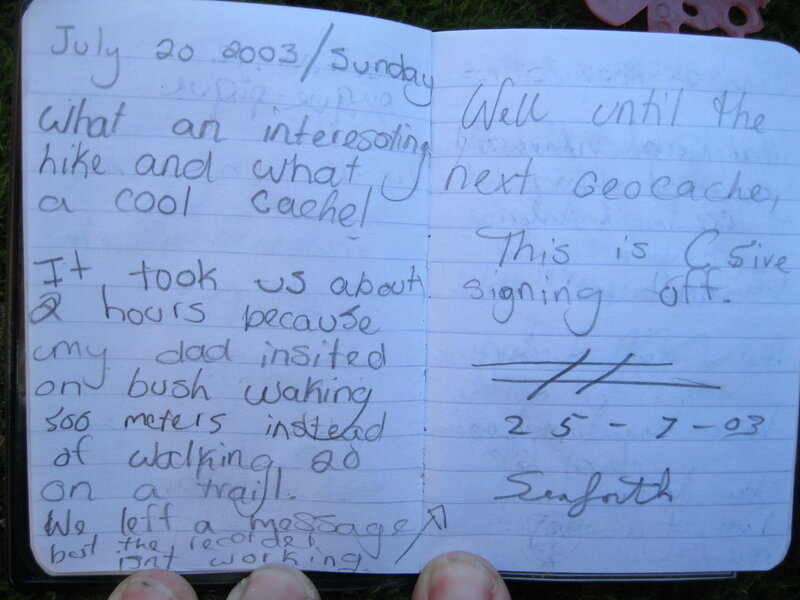 July 20 2003/Sunday
What an interesating
hike and what
a cool cache!
It took us about
2 hours because
my dad insited
on bush waking
500 meters instead
of walking 20
on a traill.
We left a message
but the recorder
isnt working
Well until the
next Geocache,
This is C5ive
signing off.
25-7-03
Seaforth